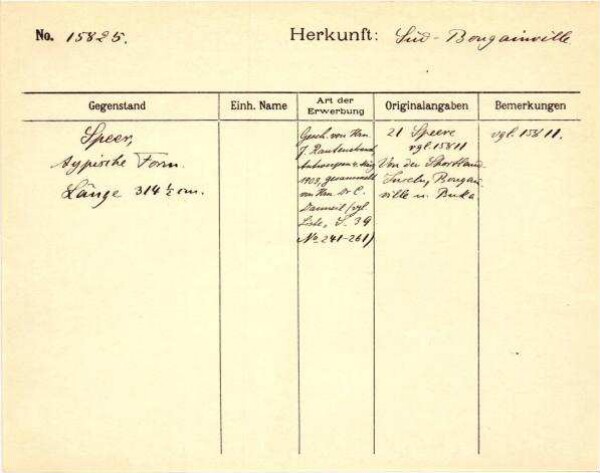 No. 15825.
Herkunft: Süd-Bougainville
Gegenstand
Einh. Name
Art der Erwerbung
Originalangaben
Bemerkungen
Speer,
atypische Form.
Länge 314 ½ cm.
Gesch. von Hrn.
J. Rautenstrauch
Antwerpen
1903, gesammelt
von Hrn. Dr. C.
Danneil (vgl.
Liste, S. 39
No 241-261)
21 Speere
vgl. 15811
Von den Shortland
Inseln, Bougain
ville u. Buka
vgl. 15811.